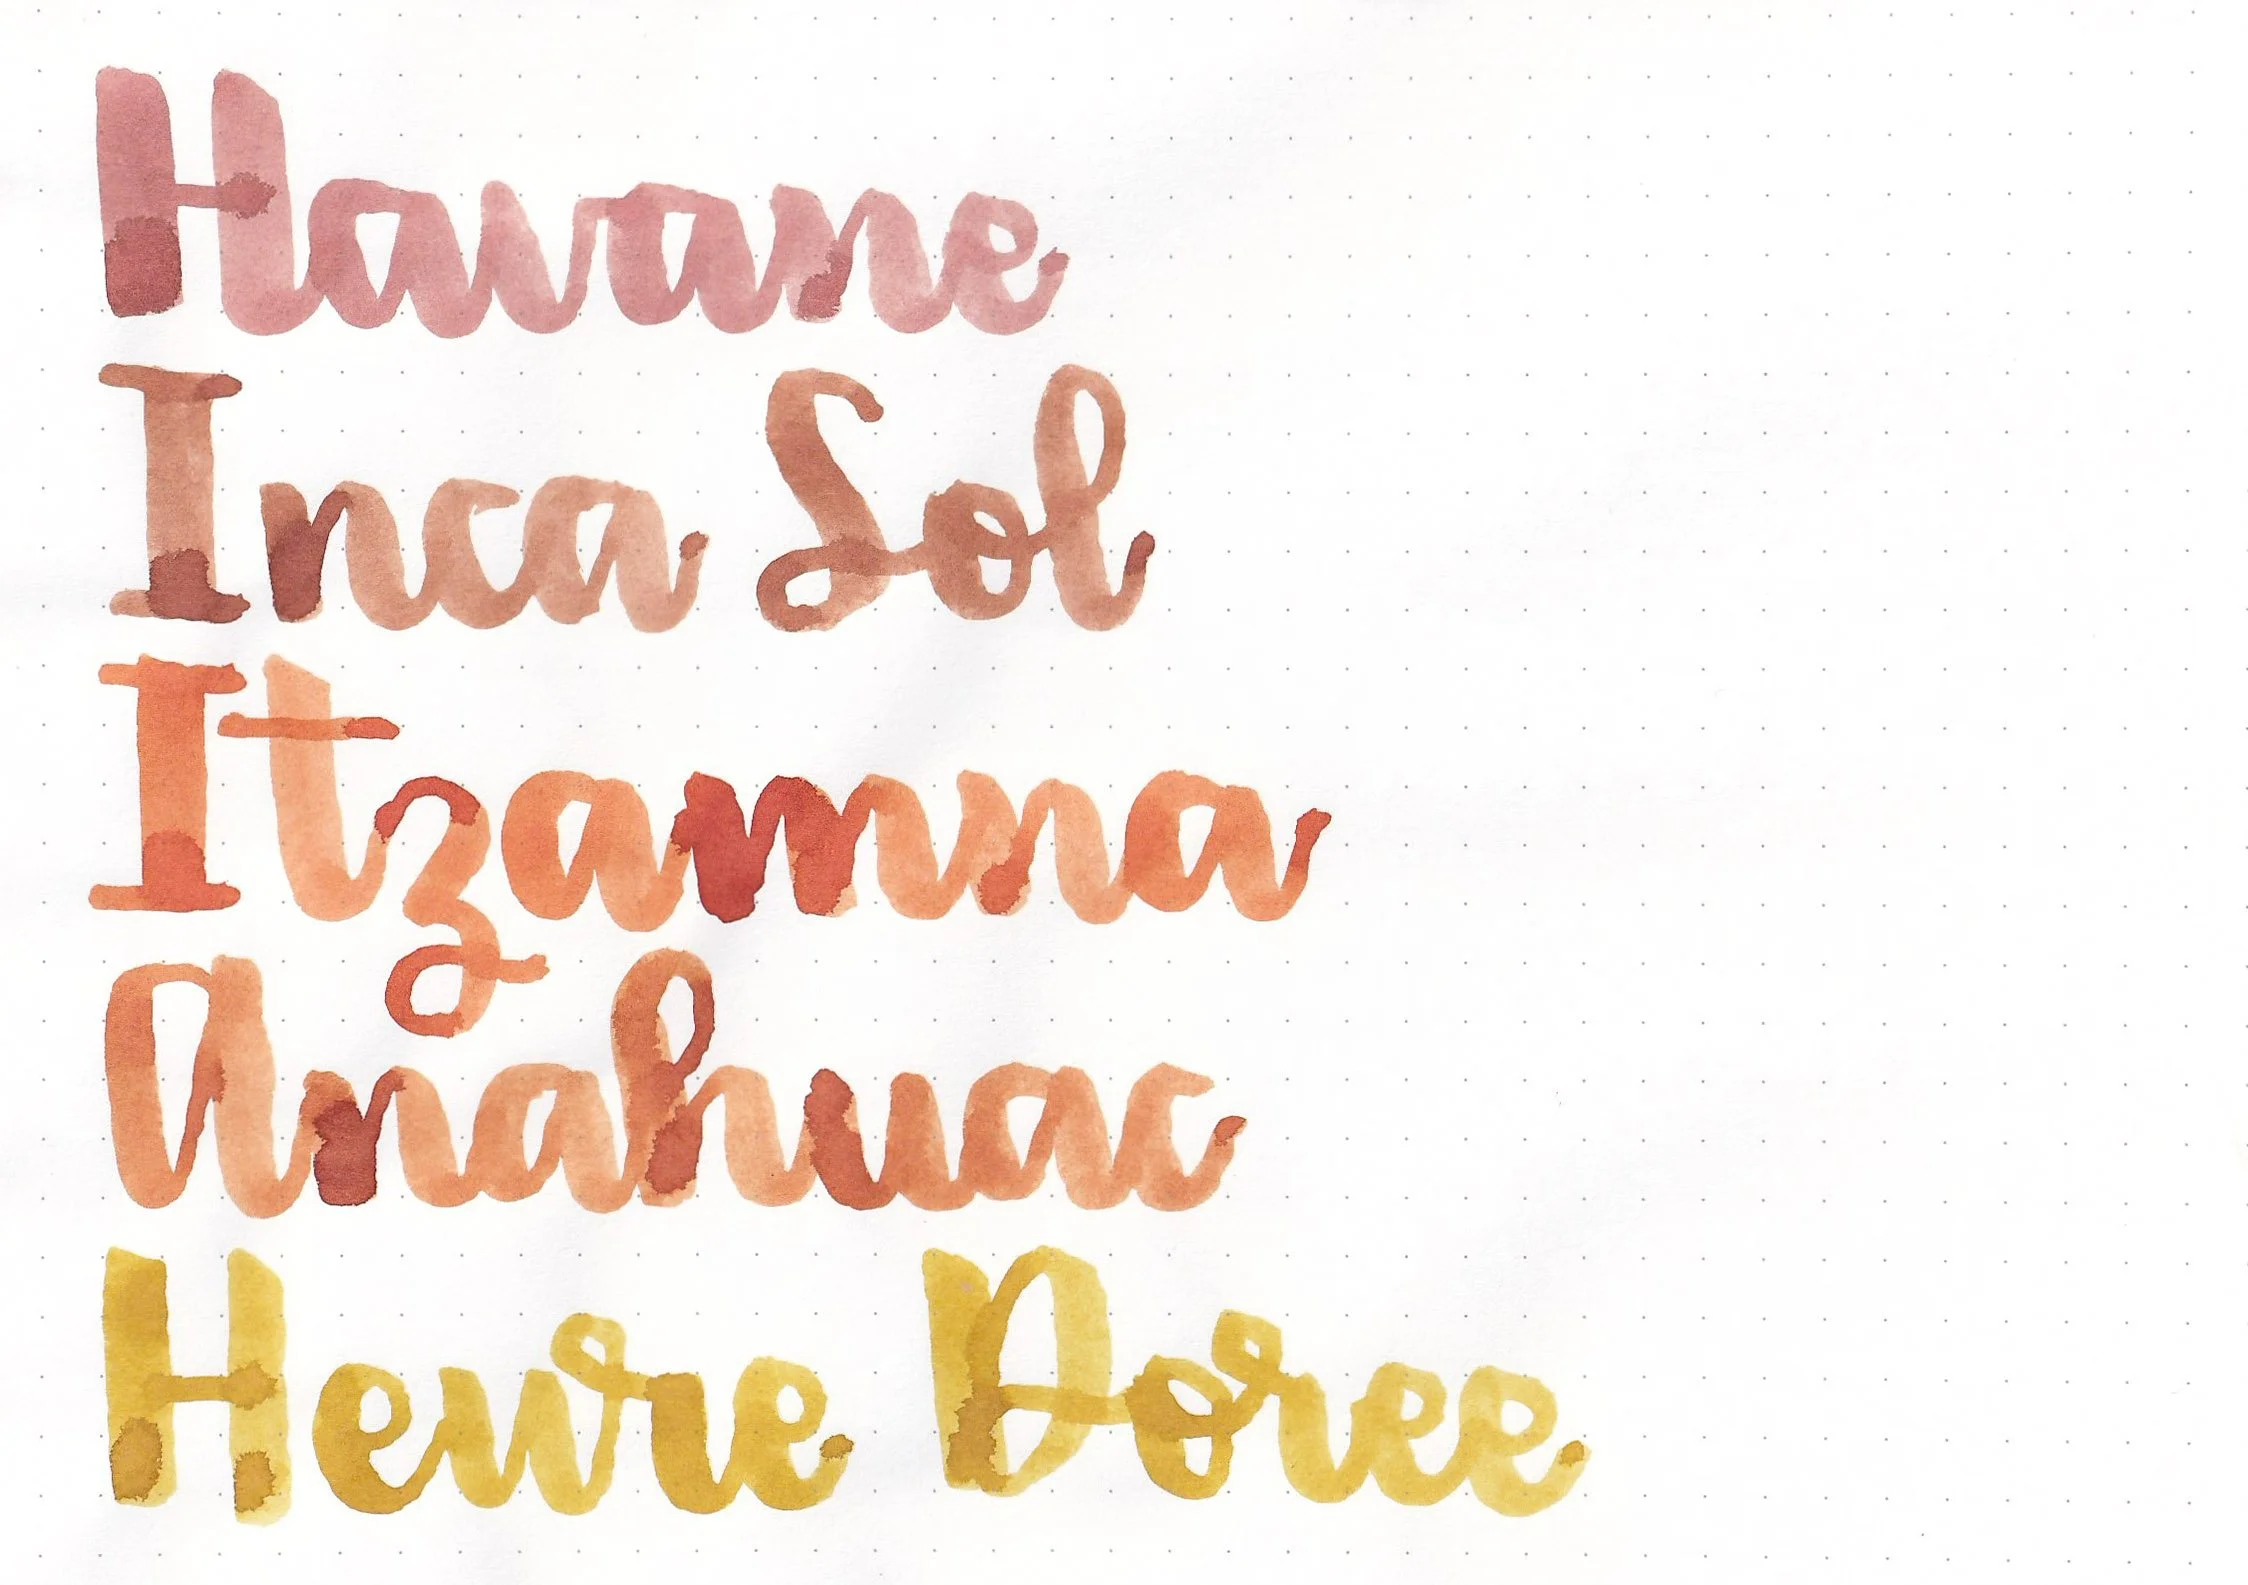 Havane
Inca Sol
Itzamna
Anahuac
Heure Doree